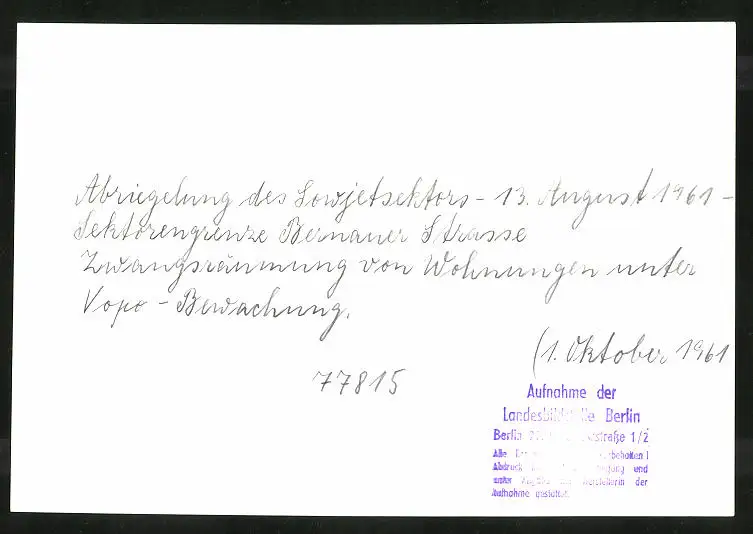 Abriegelung des Sowjetsektors - 13. August 1961 -
Sektorengrenze Bernauer Strasse
Zwangsräumung von Wohnungen unter
Vopo - Bewachung.
(1. Oktober 1961
77815
Aufnahme der
Berlin
Berlin 1/2
Alle
Abdruck und
unter der
Aufnahme gestattet.